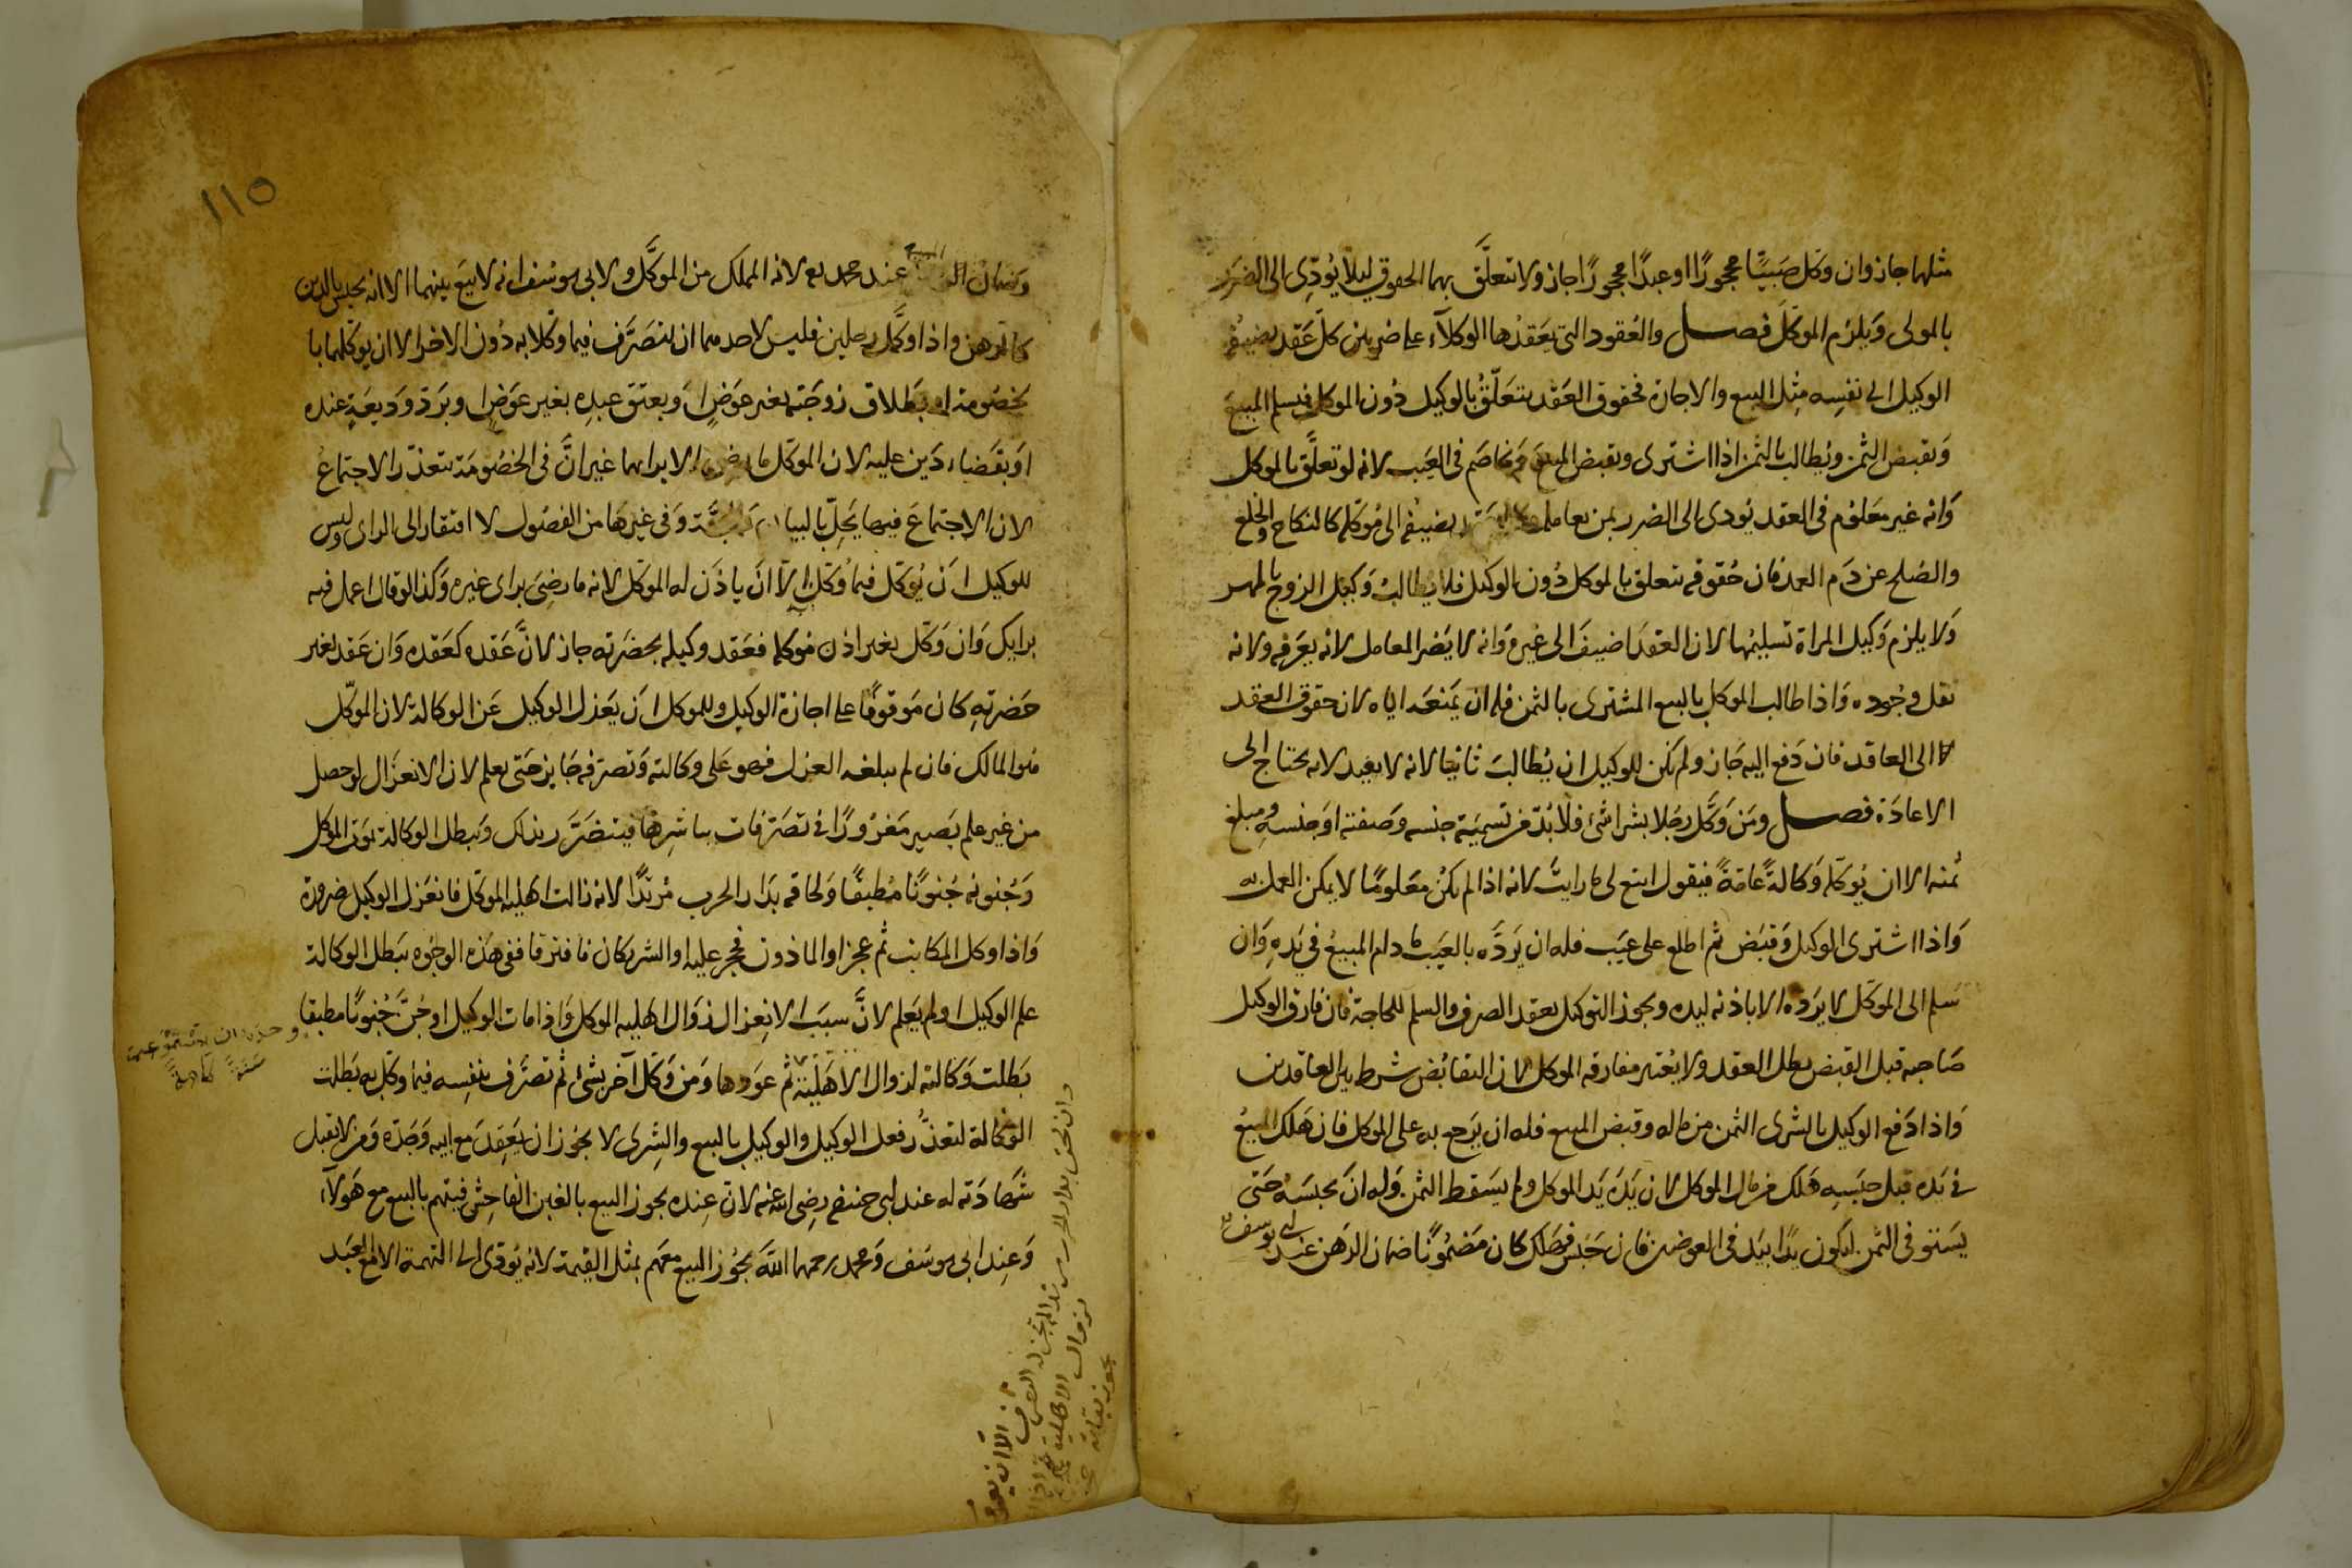 مثلهما جاز وان وكل صَبيًّا محجورًا او عبدًا محجورًا جاز ولا تتعلَّق بهما الحقوق ليلا يُودِّى الى الضرَر
بالمولى وَيلزم الموكّلَ فصل والعُقود التى يَعقدُها الوكلآء على ضربين كلّ عَقد يضيفُه
الوكيل الى نفسِه مِثل البيع والاجارة فحقوق العَقد يتعَلّقُ بالوكيل دُون الموكل فيسلم المبيعَ
وَيقبض الثمن ويُطالب بالثمن اذا اشترى ويقبض المبيع وَيخاصَم فى العَيب لانه لو تعلَّق بالموكل
وَانه غير معَلوُم فى العقد يُودى الى الضرر بمن يعامله وكل عَقد يضيفُه الى مُوَكله كالنكاح والخلع
والصُلح عن دَم العمد فان حُقوقه تتعلق بالموكل دُون الوكيل فلا يطالبُ وَكيل الزوج بالمهر
وَلا يلزم وَكيل المراة تسليمُها لان العقدَ اضيفَ الى غيره وَانه لا يَضر المعامل لانه يعَرفه ولانه
نقل وجُوده وَاذا طالب الموكل بالبيع المشترى بالثمن فله ان يَمنعَه اياه لان حقوق العقد
الى العاقد فان دَفع اليه جَاز ولم يكن للوكيل ان يُطالبَ ثانيا لانه لا يفيد لانه يحتاج الى
الاعادَة فصل ومَن وَكَّل رجُلا بشراشئ فلابُدّ من تسميَة جنسه وصَفته او جنسه ومبلغ
ثمنه الا ان يُوكله وَكالةً عامّةً فيقول ابتع لى ما رايتَ لانه اذا لم يكنُ معَلومًا لا يمكن العمل به
وَاذا اشترى الوكيل وَقبَض ثم اطلع على عيَب فله ان يَردَّه بالعيَب ما دام المبيعُ فى يَدهِ وَان
سَلم الى الموكّل لا يرَدّه الا باذنه ليده ويجوز التوكيل بعقد الصرف والسلم للحاجة فان فارق الوكيل
صَاحبه قبل القبض بطل العقد ولا يُعتبر مفارقه الموكل لان التقابُض شرط بين العاقدين
وَاذا دَفع الوكيل بالشرى الثمن من ماله وقبض المبيع فله ان يَرَجع به على الموكل فان هَلك المبيعُ
فى يَده قبل حبَسِه هَلك من مال الموكل لان يَدَه يَد الموكل ولم يسَقط الثمن وَله ان يحَبسَهُ حَتى
يسَتوفى الثمن ليكون يدًا بيَد فى العوضين فان حَبس فهلك كان مَضمُونًا ضمان الرهن عند ابى يوسف
وَضمان المبيع عند محمد رح لانه المملك من الموكَّل ولابى يوسُف انه لا بيَع بينهما الا انه يحبس بالدين
كالرهن واذا وكَّل رجلين فليس لاحدهما ان يتصَرَّف فيما وُكّلا به دُون الاخر الا ان يوكّلهما با
بخصُومة او بطلاق زوجَته بغير عوَضٍ اوَ بعتق عبدِه بغير عوَضٍ او برَدّ وَديعَةٍ عنده
اوَ بقضَاء دَين عليه لان الموكّل ما رضى الا برايهما غير انَّ فى الخصُومَة يتعذر الاجتماعُ
لان الاجتماعَ فيهما يَخِلّ بالبيان وَفى غيرهَا من الفصُول لا افتقار الى الراى وليس
للوكيل ان يُوكّل فيما وُكّل به الّا انَ ياذن له الموكّل لانه ما رضِىَ براى غيره وَكذا لو قال اعمل فيه
برايك وَان وَكّل بغير اذن مُوكله فعَقد وكيله بحضَرته جاز لانَّ عَقده كعَقده وَان عَقد بغير
حَضرتهِ كان مَوقوفًا على اجازة الوكيل وللموكل ان يعَزل الوكيل عَن الوكالة لان الموكّل
هُو المالك فان لم يبلغه العزل فهو عَلى وكالته وَتصرّفه جَايز حَتى يعلم لان الانعزَال لو حصل
من غير علم يصَير مَغرُورًا فى تصَرّفات يباشرها فيتضرَّر بذلك وَتبطل الوكالة بمَوت الموكل
وَجُنونه جُنونًا مُطبقًا وَلحاقه بدَار الحرب مُرتدًّا لانه زالت اهليه الموكل فانعَزل الوكيل ضرورة
وَاذا وكل المكاتب ثم عجز او الماذون فحجر عليه او الشريكان فافترقا ففى هذه الوجُوه تبَطل الوكالة
علم الوكيل او لم يَعلم لانَّ سبَب الانِعزال زوَال اهليه الموكل وَاذا مات الوكيل او جُنَّ جُنونًا مطبقا
بَطلت وَكالته لزوال الاهَليَّة ثم عوَدها وَمن وَكّل آخر بشئ ثم تصَرَّف بنفِسه فيما وكّل به بَطلت
الوكالة لتعذُّر فعل الوكيل والوكيل بالبيع والشِرى لا يجُوز ان يَعقدَ مع ابيه وَجَدّه وَمن لا يقبل
شَهادَته له عند ابى حنيفه رضِى الله عنه لانّ عِنده يجوز البيع بالغبن الفاحِش فيتهم بالبيع مع هَولآء
وَعِند ابى يوسُف وَمحمد رحمهما اللهَ يجُوز البيع معَهم بمثل القيمة لانه يُودّى الى التهمة الا مع العبَد
١١٥